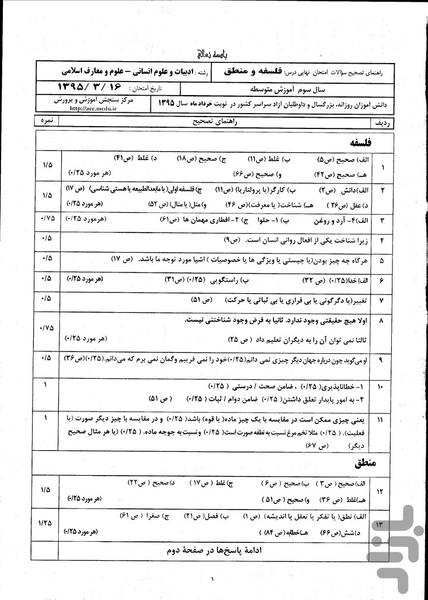 باسمه تعالی
راهنمای تصحیح سؤالات امتحان نهایی درس: فلسفه و منطق
رشته: ادبیات و علوم انسانی - علوم و معارف اسلامی
سال سوم آموزش متوسطه
تاریخ امتحان: ۱۳۹۵/۳/۱۶
دانش آموزان روزانه، بزرگسال و داوطلبان آزاد سراسر کشور در نوبت خرداد ماه سال ۱۳۹۵
مرکز سنجش آموزش و پرورش
http://aee.medu.ir
ردیف راهنمای تصحیح نمره
فلسفه
۱ الف) صحیح (ص۵) ب) غلط (ص۱۱) ج) صحیح (ص۱۸) د) غلط (ص۴۱)
هـ) صحیح (ص۴۲) و) صحیح (ص۶۶) (هر مورد ۰/۲۵) ۱/۵
۲ الف) دانش (ص۲) ب) کارگر (یا پرولتاریا) (ص۱۱) ج) فلسفه اولی (یا مابعدالطبیعه یا هستی شناسی) (ص ۱۷)
د) عقل (ص۲۶) هـ) شناخت (یا معرفت) (ص۴۶) و) مثل (یا مثال) (ص۵۲) (هر مورد ۰/۲۵) ۱/۵
۳ الف) ۴- آرد و روغن ب) ۱- حلوا ج) ۲- افطاری مهمان ها (ص۶۱) (هر مورد ۰/۲۵) ۰/۷۵
۴ زیرا شناخت یکی از افعال روانی انسان است. (ص۹) ۰/۵
۵ هرگاه چه چیز بودن (یا چیستی یا ویژگی ها یا خصوصیات) اشیا مورد توجه ما باشد. (ص ۱۷) ۰/۵
۶ الف) خدا (۰/۲۵) (ص ۳۲) ب) راستگویی (۰/۲۵) (ص۳۱) ۰/۵
۷ تغییر (یا دگرگونی یا بی قراری یا بی ثباتی یا حرکت) (ص ۵۱) ۰/۵
۸ اولا هیچ حقیقتی وجود ندارد. ثانیا به فرض وجود شناختنی نیست.
ثالثا نمی توان آن را به دیگران تعلیم داد (ص ۲۵) (هر مورد ۰/۲۵) ۰/۷۵
۹ او می گوید چون درباره جهان دیگر چیزی نمی دانم (۰/۲۵) خود را نمی فریبم وگمان نمی برم که می دانم. (۰/۲۵) (ص۳۶) ۰/۵
۱۰ ۱- خطاناپذیری (۰/۲۵) ، ضامن صحت / درستی (۰/۲۵)
۲- به امور پایدار تعلق داشتن (۰/۲۵) ضامن دوام / ثبات (۰/۲۵) (ص ۵۱) ۱
۱۱ یعنی چیزی ممکن است در مقایسه با یک چیز ماده (یا قوه) باشد (۰/۲۵) و در مقایسه با چیز دیگر صورت (یا
فعلیت). (۰/۲۵) مثلا تخم مرغ نسبت به نطفه صورت است (۰/۲۵) و نسبت به جوجه ماده. (۰/۲۵) (یا هر مثال صحیح
دیگر) (ص ۶۷) ۱
منطق
۱۲ الف) صحیح (ص ۳) ب) صحیح (ص ۶) ج) غلط (ص ۱۷) د) صحیح (ص۲۲)
هـ) غلط (ص ۳۶) و) صحیح (ص ۵۱) (هر مورد ۰/۲۵) ۱/۵
۱۳ الف) نطق (یا تفکر یا تعقل یا اندیشه) (ص ۱) ب) فصل (ص۲۱) ج) صغرا (ص ۶۱)
د) شش (ص۶۶) هـ) خطابه (ص ۸۴) (هر مورد ۰/۲۵) ۱/۲۵
ادامۀ پاسخ‌ها در صفحۀ دوم
۱
بازار